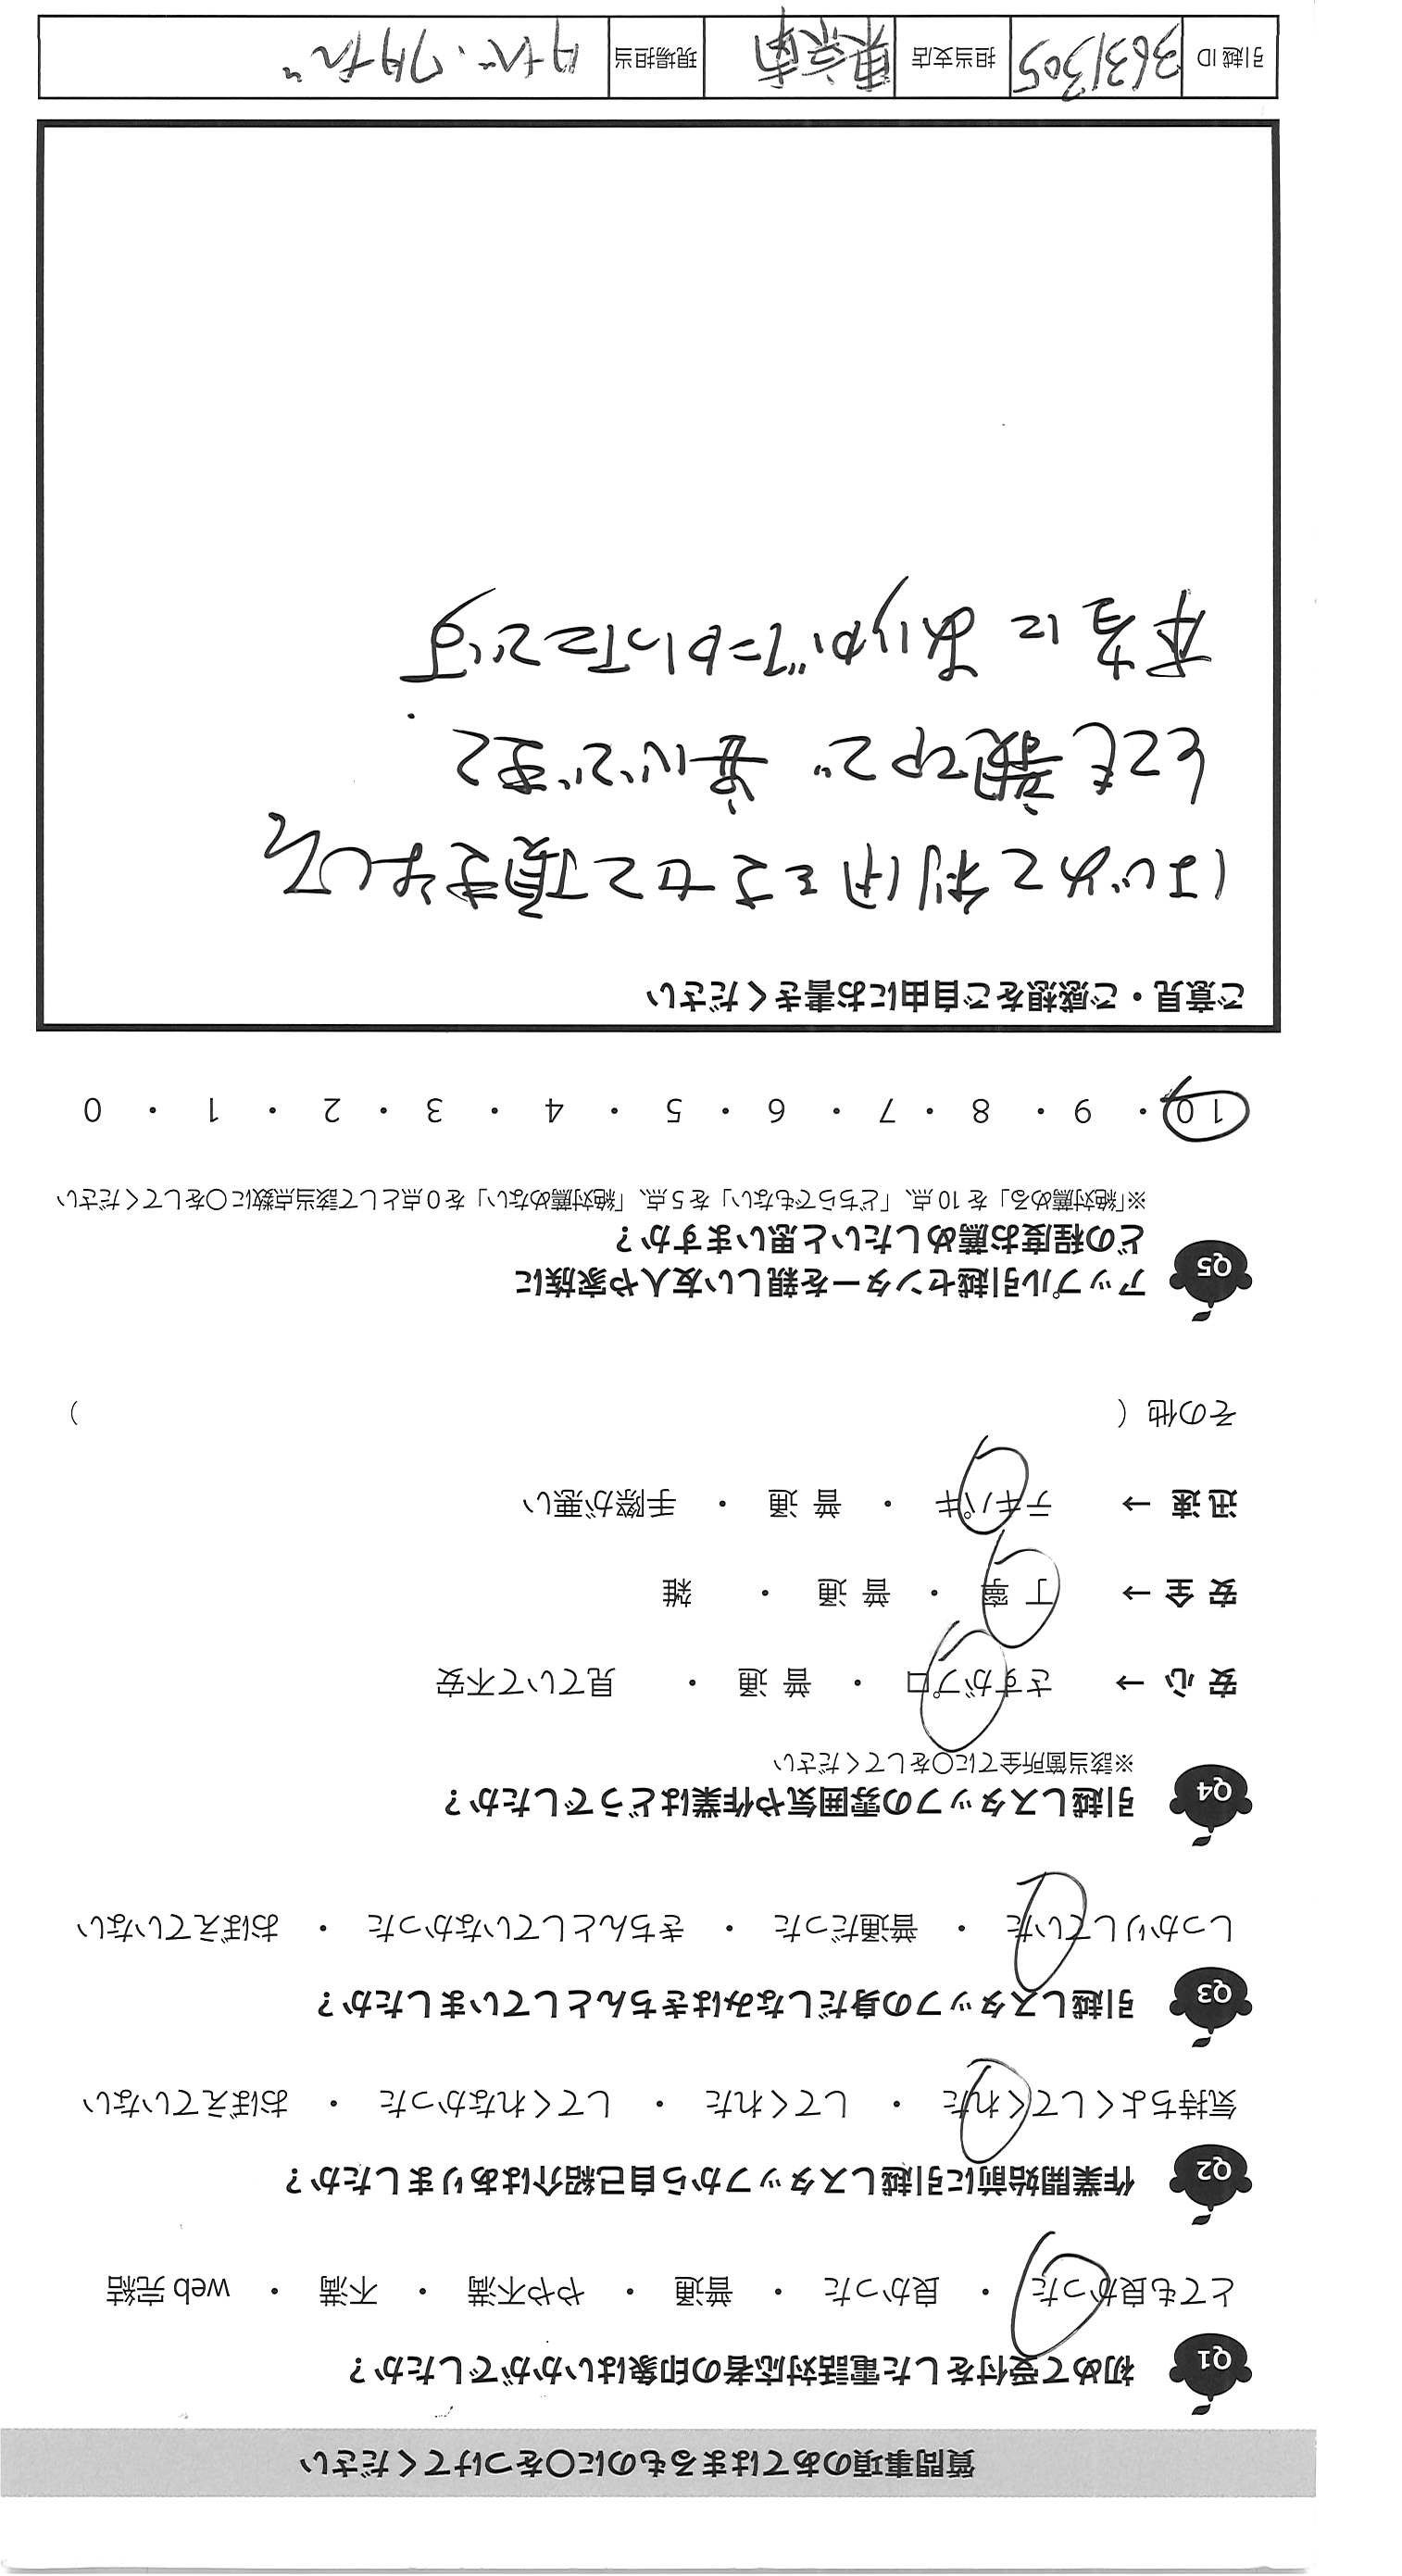 質問事項のあてはまるものに〇をつけてください
Q1 初めて受付をした電話対応者の印象はいかがでしたか？
とても良かった ・ 良かった ・ 普通 ・ やや不満 ・ 不満 ・ web 完結
Q2 作業開始前に引越しスタッフから自己紹介はありましたか？
気持ちよくしてくれた ・ してくれた ・ してくれなかった ・ おぼえていない
Q3 引越しスタッフの身だしなみはきちんとしていましたか？
しっかりしていた ・ 普通だった ・ きちんとしていなかった ・ おぼえていない
Q4 引越しスタッフの雰囲気や作業はどうでしたか？
※該当箇所全てに〇をしてください
安 心 → さすがプロ ・ 普 通 ・ 見ていて不安
安 全 → 丁 寧 ・ 普 通 ・ 雑
迅 速 → テキパキ ・ 普 通 ・ 手際が悪い
その他（ ）
Q5 アップル引越センターを親しい友人や家族に
どの程度お薦めしたいと思いますか？
※「絶対薦める」を 10 点、「どちらでもない」を 5 点、「絶対薦めない」を 0 点として該当点数に〇をしてください
10 ・ 9 ・ 8 ・ 7 ・ 6 ・ 5 ・ 4 ・ 3 ・ 2 ・ 1 ・ 0
ご意見・ご感想をご自由にお書きください
はじめて利用をさせて頂きまして
とても親切で 安心できて
本当に ありがたかったです
引越 ID 3631305 担当支店 東京南 現場担当